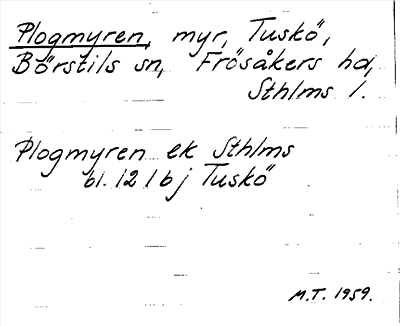 Plogmyren, myr, Tuskö,
Börstils sn, Frösåkers hd,
Sthlms l.
Plogmyren ek Sthlms
bl. 12 1 b j Tuskö
M.T. 1959.